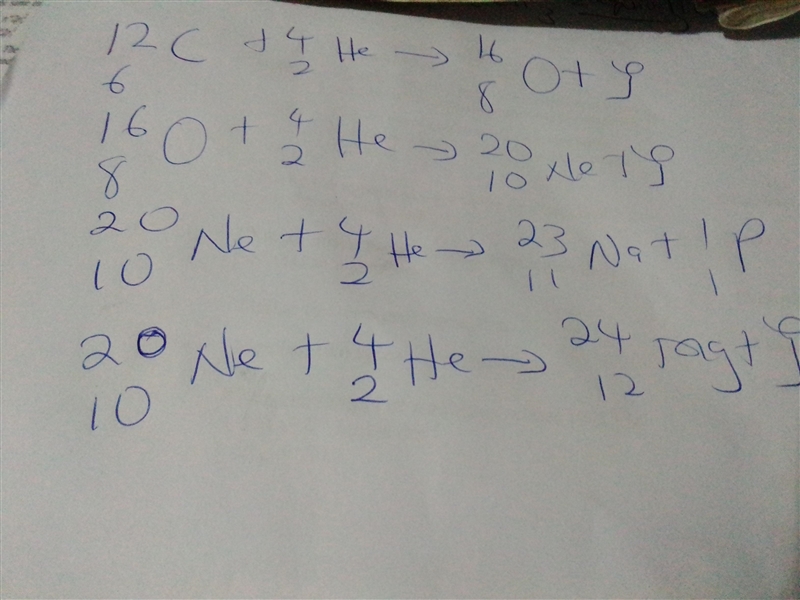 ¹²₆C + ⁴₂He → ¹⁶₈O + γ
¹⁶₈O + ⁴₂He → ²⁰₁₀Ne + γ
²⁰₁₀Ne + ⁴₂He → ²³₁₁Na + ¹₁P
²⁰₁₀Ne + ⁴₂He → ²⁴₁₂mg + γ